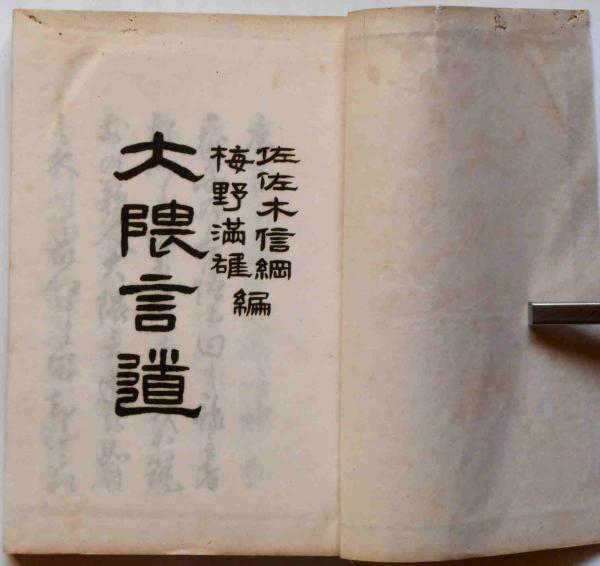 佐佐木信綱
梅野満雄 編
大隈言道